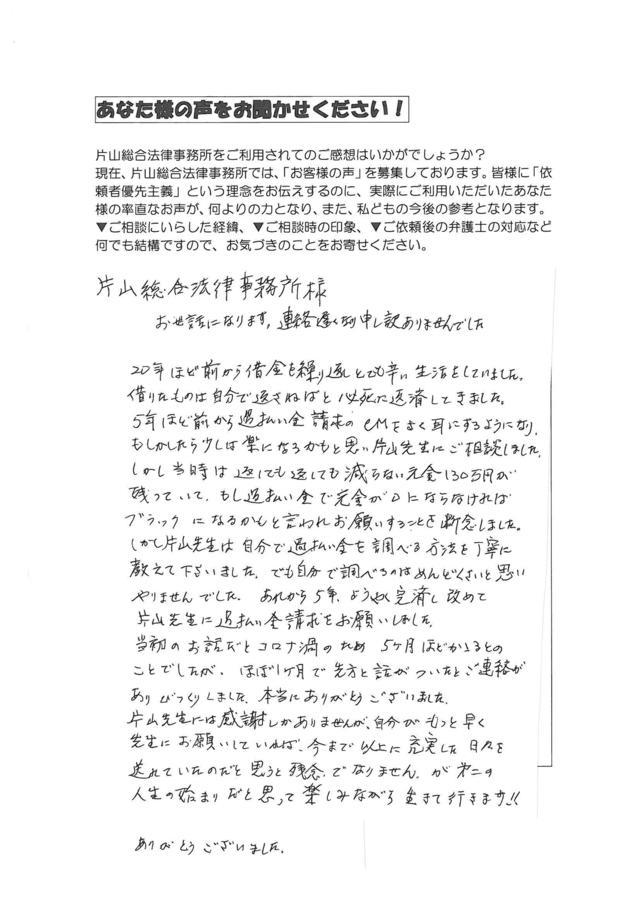 あなた様の声をお聞かせください！
片山総合法律事務所をご利用されてのご感想はいかがでしょうか？
現在、片山総合法律事務所では、「お客様の声」を募集しております。皆様に「依
頼者優先主義」という理念をお伝えするのに、実際にご利用いただいたあなた
様の率直なお声が、何よりの力となり、また、私どもの今後の参考となります。
▼ご相談にいらした経緯、▼ご相談時の印象、▼ご依頼後の弁護士の対応など
何でも結構ですので、お気づきのことをお寄せください。
片山総合法律事務所様
お世話になります。連絡遅くなり申し訳ありませんでした
20年ほど前から借金を繰り返しとても辛い生活をしていました。
借りたものは自分で返さねばと必死に返済してきました。
5年ほど前から過払い金請求のCMをよく耳にするようになり、
もしかしたら少しは楽になるかもと思い片山先生にご相談しました。
しかし当時は返しても返しても減らない元金130万円が
残っていて、もし過払い金で元金が0にならなければ
ブラックになるかもと言われお願いすることを断念しました。
しかし片山先生は自分で過払い金を調べる方法を丁寧に
教えて下さいました。でも自分で調べるのはめんどくさいと思い
やりませんでした。あれから5年、ようやく完済し改めて
片山先生に過払い金請求をお願いしました。
当初のお話だとコロナ渦のため 5ヶ月ほどかかるとの
ことでしたが、ほぼ1ヶ月で先方と話がついたとご連絡が
ありびっくりしました。本当にありがとうございました。
片山先生には感謝しかありませんが、自分がもっと早く
先生にお願いしていれば、今まで以上に充実した日々を
送れていたのだと思うと残念でなりません。が第二の
人生の始まりだと思って楽しみながら生きて行きます!!
ありがとうございました。